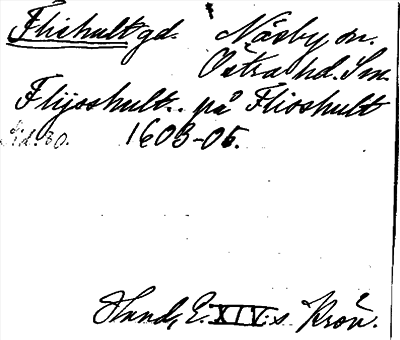 Flishult gd. Näsby sn.
Östra hd. Sm.
Flijsshult.. på Flisshult
S. d. 30. 1603-05.
Hand, E. XIV:s Krön.